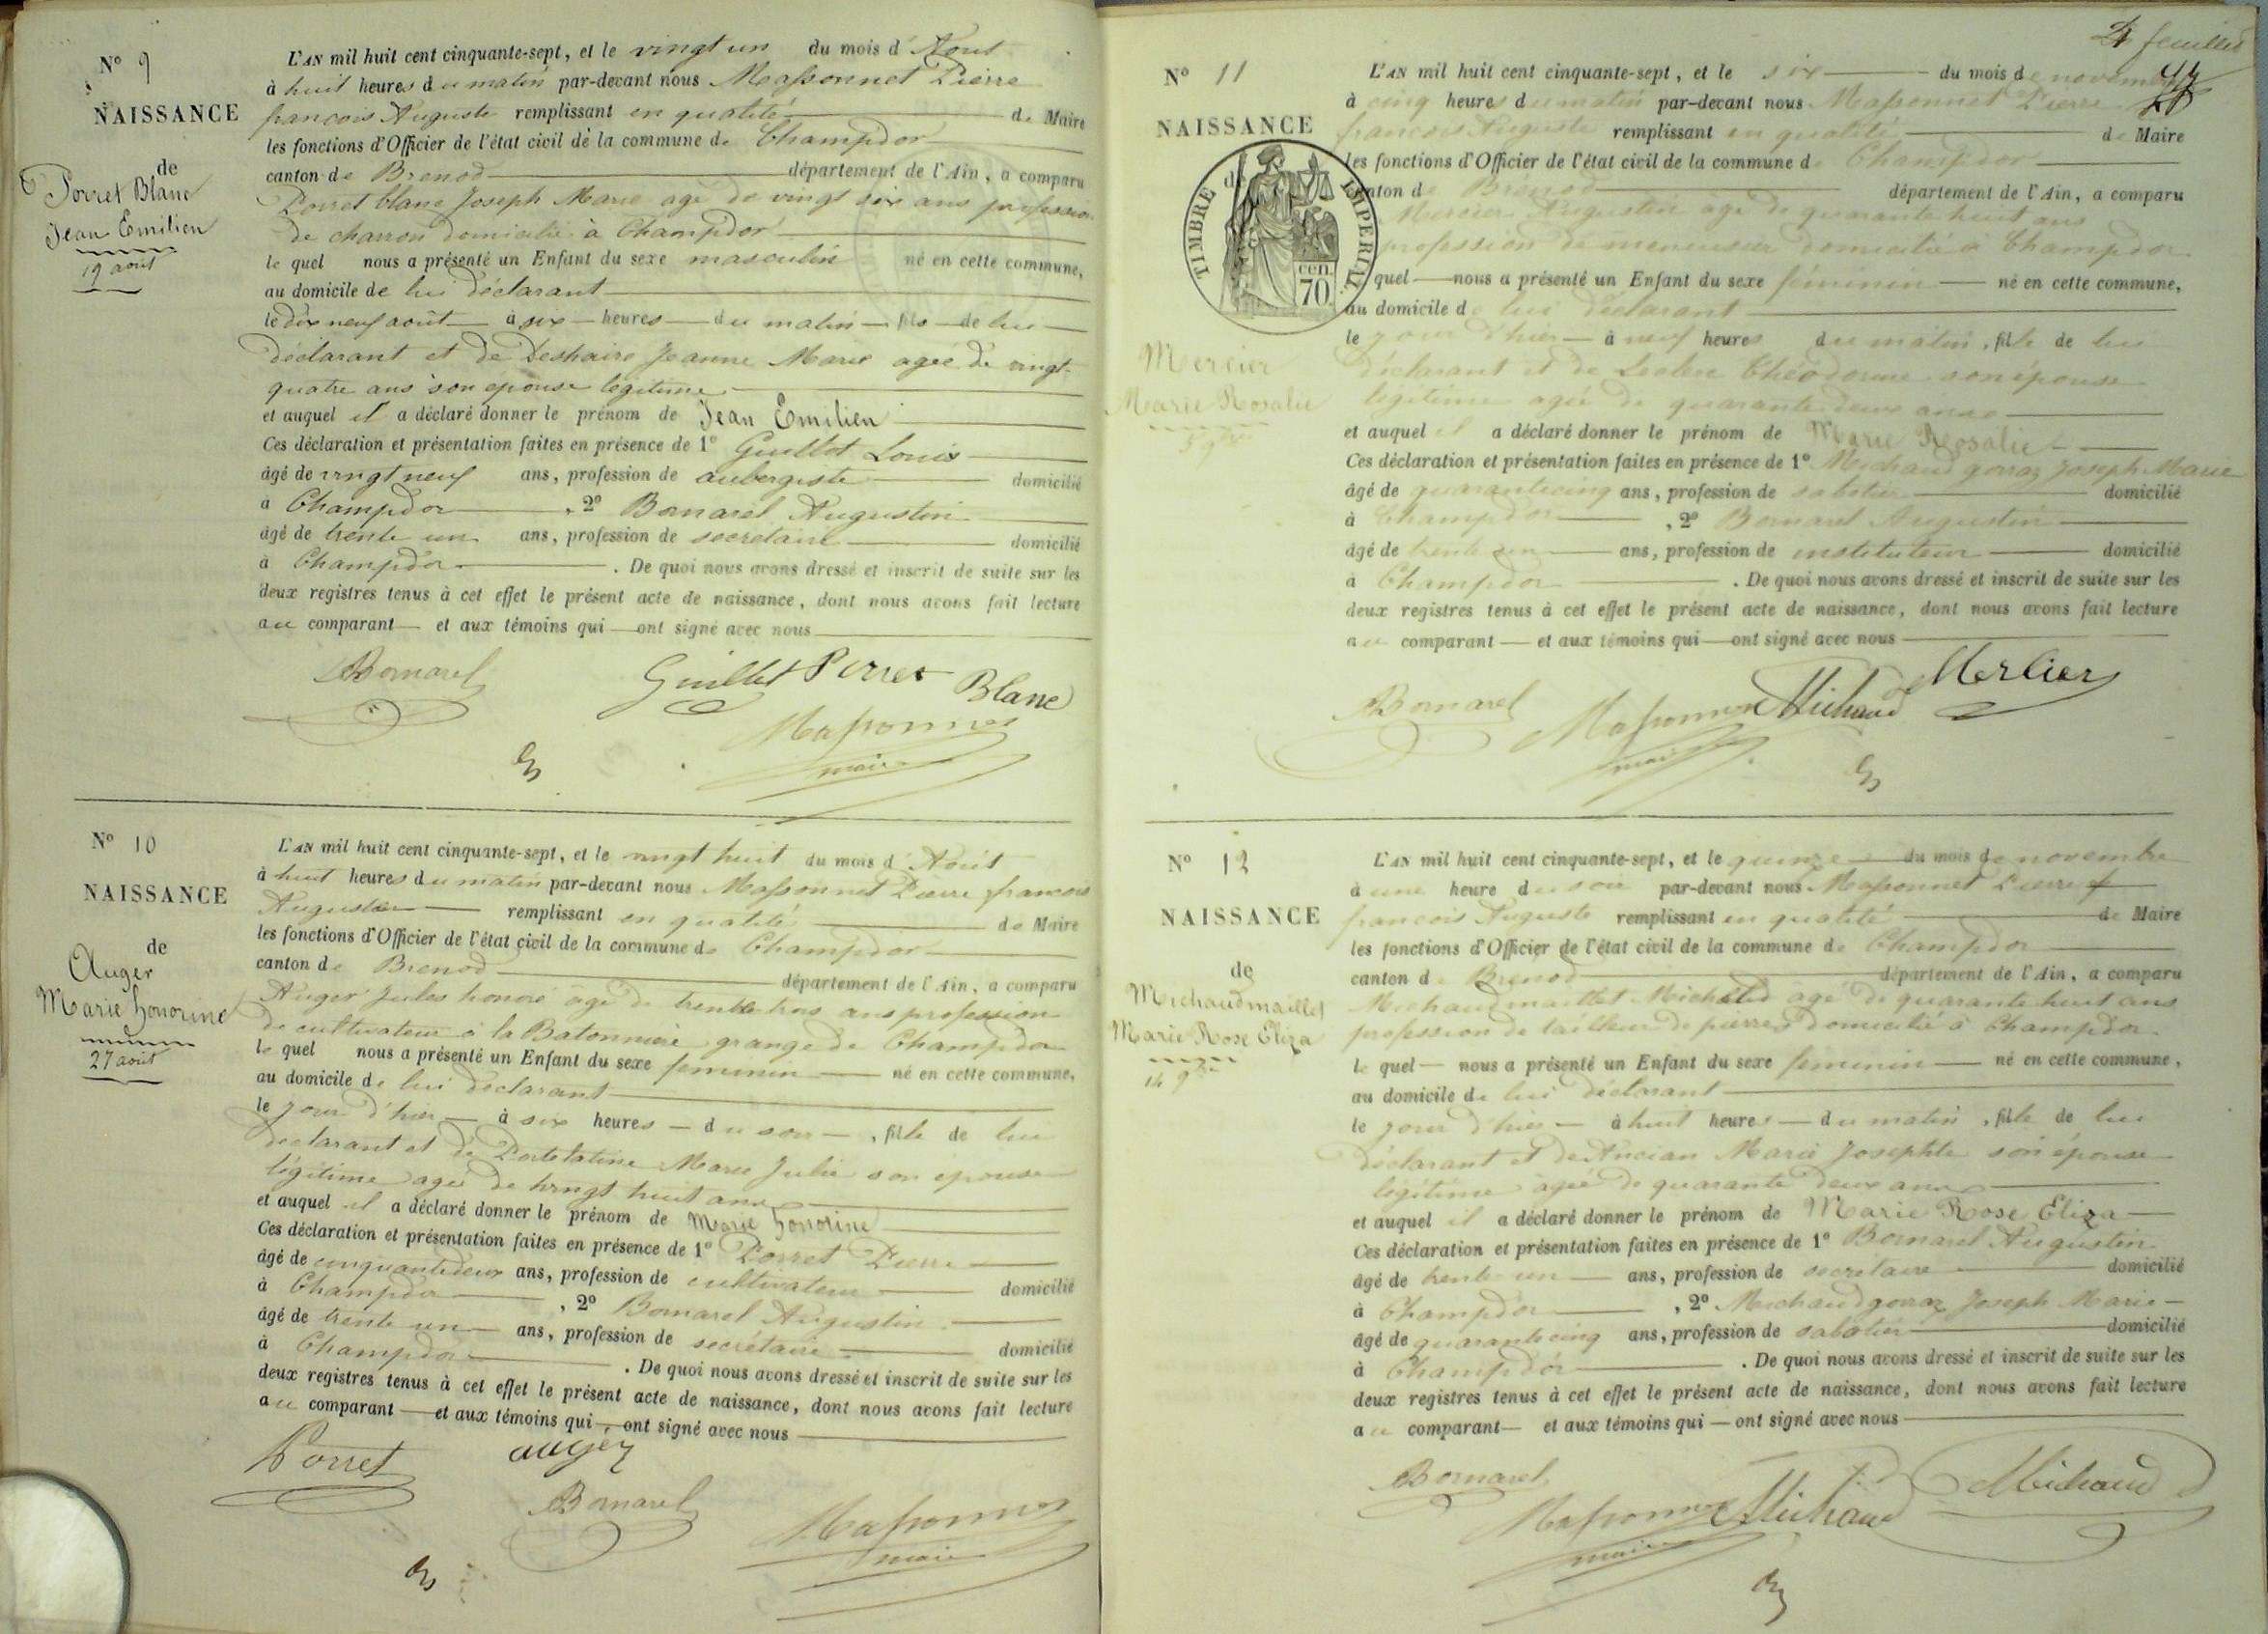 N° 9
NAISSANCE
de
Porret Blanc
Jean Emilien
19 août
L'AN mil huit cent cinquante-sept, et le vingt un du mois d'Aout
à huit heures du matin par-devant nous Massonnet Pierre
francois Auguste remplissant en qualité de Maire
les fonctions d'Officier de l'état civil de la commune de Champdor
canton de Brenod département de l'Ain, a comparu
Porret blanc Joseph Marie agé de vingt six ans profession
de charron domicilié à Champdor
le quel nous a présenté un Enfant du sexe masculin né en cette commune,
au domicile de lui déclarant
le dix neuf août à six heures du matin fils de lui
déclarant et de Jeanne Marie agée de vingt
quatre ans son épouse légitime
et auquel il a déclaré donner le prénom de Jean Emilien
Ces déclaration et présentation faites en présence de 1° Guillot Louis
âgé de vingt neuf ans, profession de aubergiste domicilié
à Champdor, 2° Bornarel Augustin
âgé de trente un ans, profession de secrétaire domicilié
à Champdor. De quoi nous avons dressé et inscrit de suite sur les
deux registres tenus à cet effet le présent acte de naissance, dont nous avons fait lecture
au comparant et aux témoins qui ont signé avec nous
Bornarel Guillot Porret Blanc
Massonnet
maire
N° 10
NAISSANCE
de
Auger
Marie honorine
27 août
L'AN mil huit cent cinquante-sept, et le vingt huit du mois d'Aout
à huit heures du matin par-devant nous Massonnet Pierre francois
Auguste remplissant en qualité de Maire
les fonctions d'Officier de l'état civil de la commune de Champdor
canton de Brenod département de l'Ain, a comparu
Auger Jules honoré agé de trente trois ans profession
de cultivateur à la Batonniere grange de Champdor
le quel nous a présenté un Enfant du sexe feminin né en cette commune,
au domicile de lui déclarant
le jour d'hier à six heures du soir, fille de lui
déclarant et de Marie Julie son epouse
légitime agée de vingt huit ans
et auquel il a déclaré donner le prénom de Marie honorine
Ces déclaration et présentation faites en présence de 1° Porret Pierre
âgé de cinquante deux ans, profession de cultivateur domicilié
à Champdor, 2° Bornarel Augustin
âgé de trente un ans, profession de secrétaire domicilié
à Champdor. De quoi nous avons dressé et inscrit de suite sur les
deux registres tenus à cet effet le présent acte de naissance, dont nous avons fait lecture
au comparant et aux témoins qui ont signé avec nous
Porret auger
Bornarel Massonnet
maire
feuillet
N° 11
NAISSANCE
de
TIMBRE IMPERIAL
cen.
70
Mercier
Marie Rosalie
5 9bre
L'AN mil huit cent cinquante-sept, et le six du mois de novembre
à cinq heures du matin par-devant nous Massonnet Pierre
francois Auguste remplissant en qualité de Maire
les fonctions d'Officier de l'état civil de la commune de Champdor
canton de Brenod département de l'Ain, a comparu
Mercier Augustin agé de quarante huit ans
profession de menuisier domicilié à Champdor
le quel nous a présenté un Enfant du sexe féminin né en cette commune,
au domicile de lui déclarant
le jour d'hier à neuf heures du matin, fille de lui
déclarant et de Leclerc Théodorine son épouse
légitime agée de quarante deux ans
et auquel il a déclaré donner le prénom de Marie Rosalie
Ces déclaration et présentation faites en présence de 1° Michaud gorraz Joseph Marie
âgé de quarante cinq ans, profession de sabotier domicilié
à Champdor, 2° Bornarel Augustin
âgé de trente un ans, profession de instituteur domicilié
à Champdor. De quoi nous avons dressé et inscrit de suite sur les
deux registres tenus à cet effet le présent acte de naissance, dont nous avons fait lecture
au comparant et aux témoins qui ont signé avec nous
Bornarel Massonnet Michaud Mercier
maire
N° 12
NAISSANCE
de
Michaudmaillet
Marie Rose Eliza
14 9bre
L'AN mil huit cent cinquante-sept, et le quinze du mois de novembre
à une heure du soir par-devant nous Massonnet Pierre
francois Auguste remplissant en qualité de Maire
les fonctions d'Officier de l'état civil de la commune de Champdor
canton de Brenod département de l'Ain, a comparu
Michaudmaillet agé de quarante huit ans
profession de tailleur de pierres domicilié à Champdor
le quel nous a présenté un Enfant du sexe féminin né en cette commune,
au domicile de lui déclarant
le jour d'hier à huit heures du matin, fille de lui
déclarant et de Ancian Marie Josephte son épouse
légitime agée de quarante deux ans
et auquel il a déclaré donner le prénom de Marie Rose Eliza
Ces déclaration et présentation faites en présence de 1° Bornarel Augustin
âgé de trente un ans, profession de secretaire domicilié
à Champdor, 2° Michaudgorraz Joseph Marie
âgé de quarante cinq ans, profession de sabotier domicilié
à Champdor. De quoi nous avons dressé et inscrit de suite sur les
deux registres tenus à cet effet le présent acte de naissance, dont nous avons fait lecture
au comparant et aux témoins qui ont signé avec nous
Bornarel Massonnet Michaud Michaud
maire